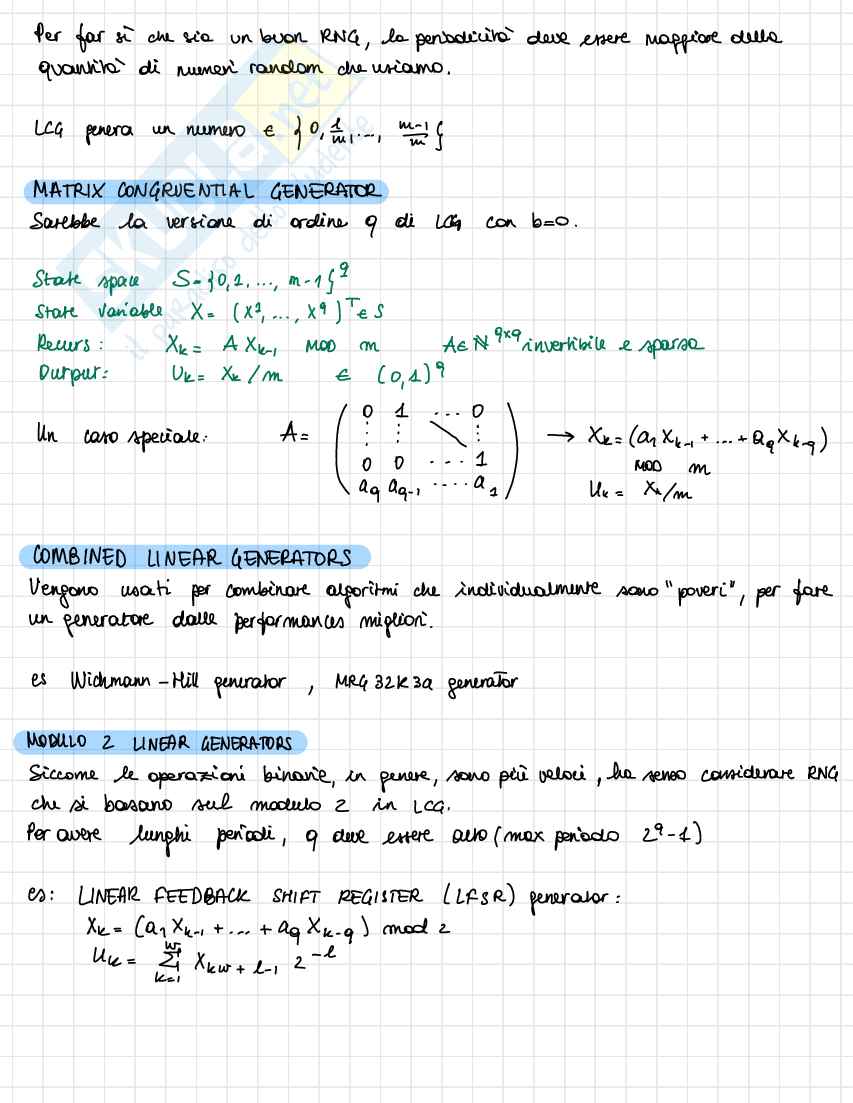 Per far sì che sia un buon RNG, la periodicità deve essere maggiore della
quantità di numeri random che usiamo.
LCG genera un numero ∈ {0, 1/m, ..., (m-1)/m}
MATRIX CONGRUENTIAL GENERATOR
Sarebbe la versione di ordine q di LCG con b=0.
State space S={0,1, ..., m-1}^q
State variable X= (X^1, ..., X^q)^T ∈ S
Recurs: X_k = A X_{k-1} MOD m A∈ ℕ^{q×q} invertibile e sparsa
Output: U_k = X_k / m ∈ (0,1)^q
Un caso speciale: A= ( 0 1 ... 0 ; ⋮ ⋮ \ ⋮ ; 0 0 ... 1 ; a_q a_{q-1} .... a_1 ) → X_k = (a_1 X_{k-1} + ... + a_q X_{k-q})
MOD m
U_k = X_k/m
COMBINED LINEAR GENERATORS
Vengono usati per combinare algoritmi che individualmente sono "poveri", per fare
un generatore dalle performances migliori.
es Wichmann-Hill generator , MRG 32K3a generator
MODULO 2 LINEAR GENERATORS
Siccome le operazioni binarie, in genere, sono più veloci, ha senso considerare RNG
che si basano sul modulo 2 in LCG.
Per avere lunghi periodi, q deve essere alto (max periodo 2^q-1)
es: LINEAR FEEDBACK SHIFT REGISTER (LFSR) generator:
X_k = (a_1 X_{k-1} + ... + a_q X_{k-q}) mod 2
U_k = Σ_{k=1}^{w} X_{kw+l-1} 2^{-l}
SKUOLA.net
il paradiso dello studente